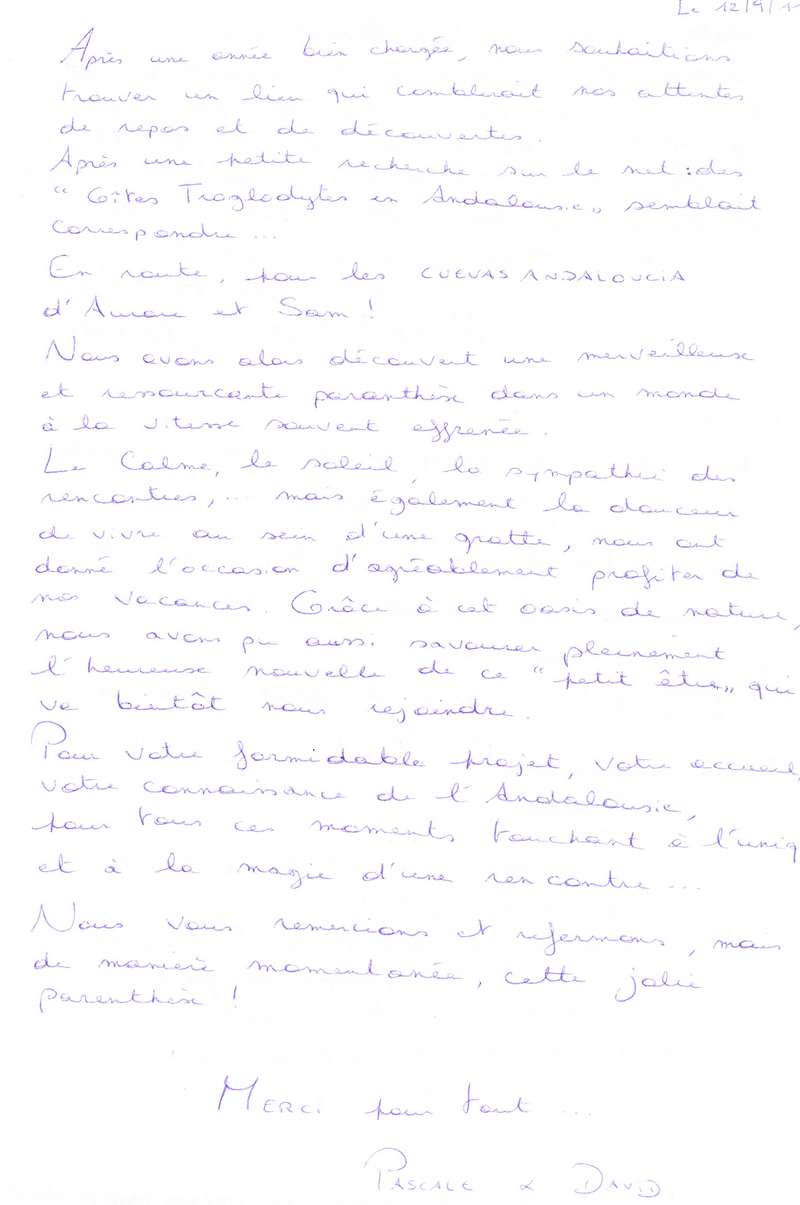 Le 12/9/11
Après une année bien chargée, nous souhaitions
trouver un lieu qui comblerait nos attentes
de repos et de découvertes.
Après une petite recherche sur le net : des
“ Gîtes Troglodytes en Andalousie „ semblait
correspondre ...
En route, pour les CUEVAS ANDALOUCIA
d'Aurore et Sam !
Nous avons alors découvert une merveilleuse
et ressourçante paranthèse dans un monde
à la vitesse souvent effrenée.
Le Calme, le soleil, la sympathie des
rencontres, ... mais également la douceur
de vivre au sein d'une grotte, nous ont
donné l'occasion d'agréablement profiter de
nos vacances. Grâce à cet oasis de nature,
nous avons pu aussi savourer pleinement
l'heureuse nouvelle de ce “ petit être „ qui
va bientôt nous rejoindre.
Pour votre formidable projet, votre accueil,
votre connaissance de l'Andalousie,
pour tous ces moments touchant à l'uniq
et à la magie d'une rencontre ...
Nous vous remercions et refermons, mais
de manière momentanée, cette jolie
parenthèse !
MERCI pour tout ...
PASCALE & DAVID.